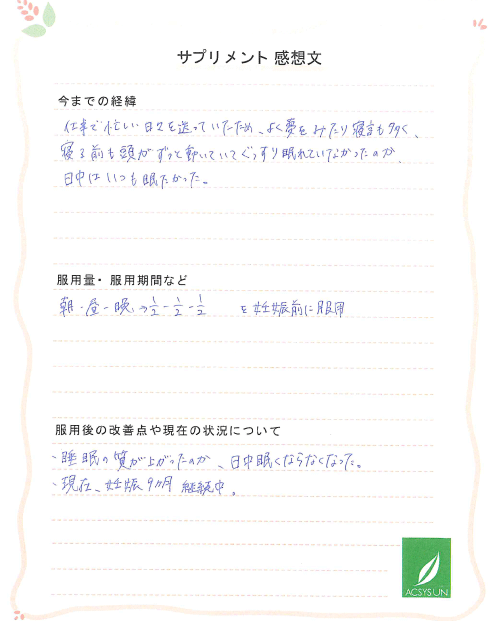 サプリメント 感想文
今までの経緯
仕事で忙しい日々を送っていたため、よく夢をみたり寝言も多く、
寝る前も頭がずっと動いていてぐっすり眠れていなかったのか、
日中はいつも眠たかった。
服用量・服用期間など
朝-昼-晩→1/2-1/2-1/2 を妊娠前に服用
服用後の改善点や現在の状況について
・睡眠の質が上がったのか、日中眠くならなくなった。
・現在、妊娠9ヵ月 継続中。
ACSYSUN